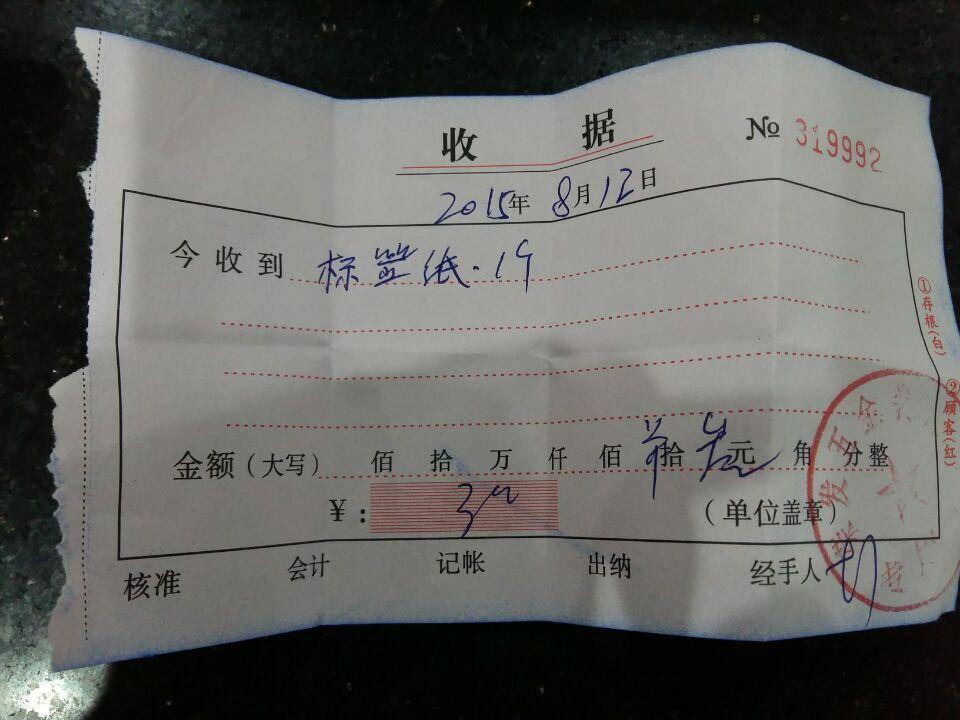 收 据
№ 319992
2015年 8月12日
今收到 标签纸.1个
金额（大写） 佰 拾 万 仟 佰 拾 元 角 分整
￥：
（单位盖章）
核准 会计 记帐 出纳 经手人
①存根(白)
②顾客(红)
发五金